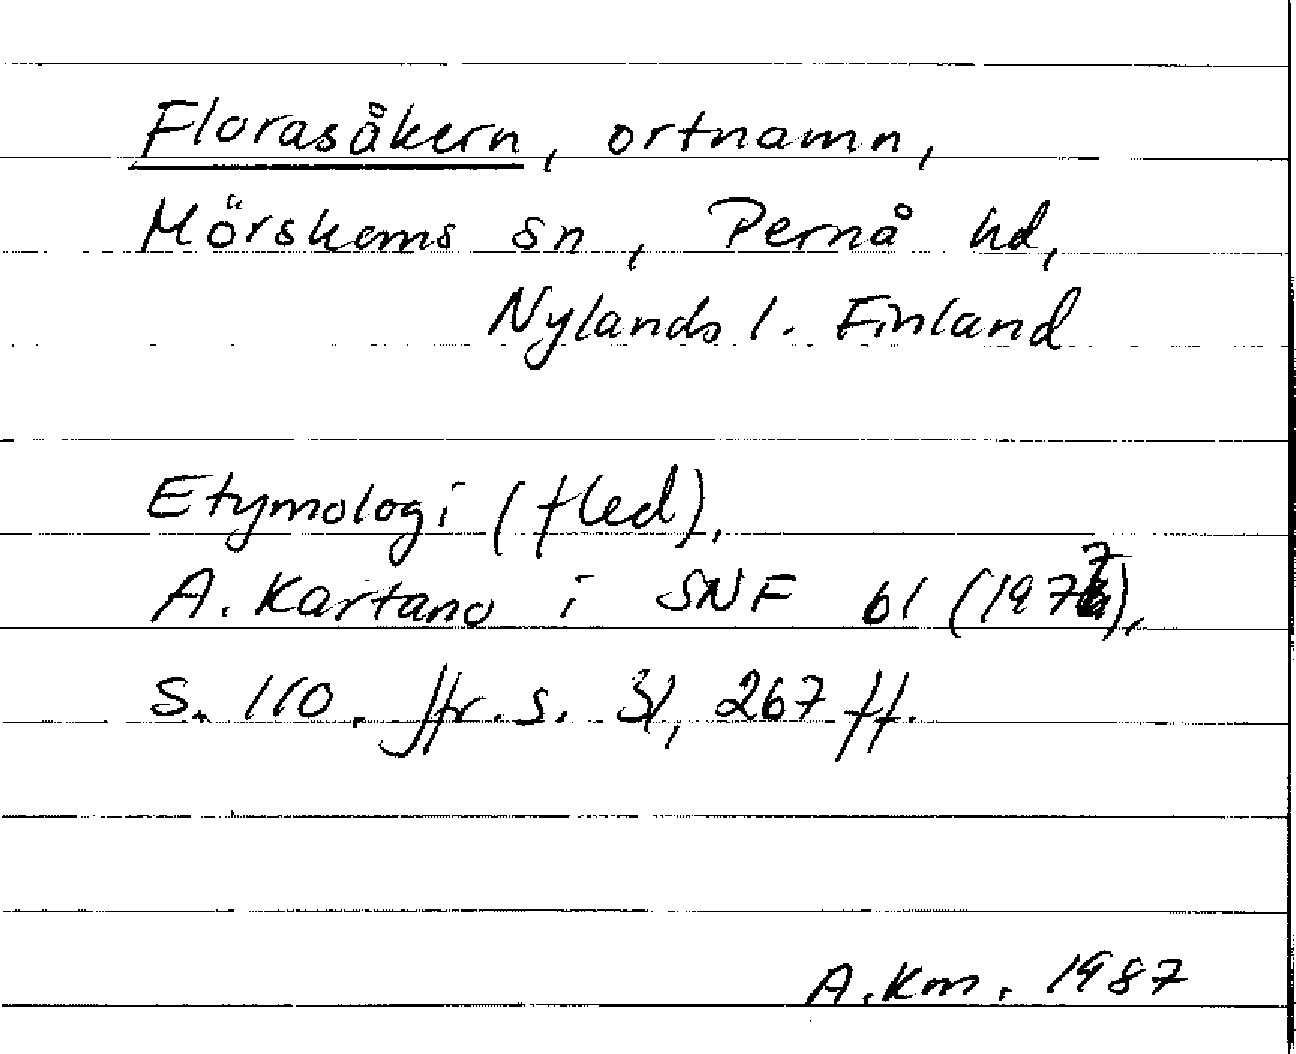 Florasåkern, ortnamn,
Mörskoms sn, Pernå hd,
Nylands l. Finland
Etymologi (fled).
A. Kartano i SNF 61 (1977),
s. 110. Jfr. s. 31, 267 ff.
A.Km. 1987